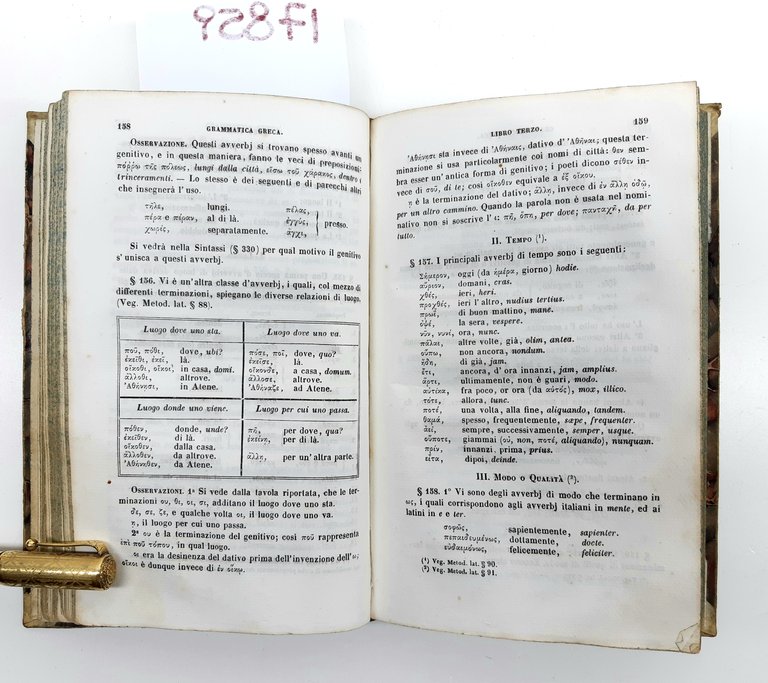 17876
158 GRAMMATICA GRECA.
OSSERVAZIONE. Questi avverbj si trovano spesso avanti un
genitivo, e in questa maniera, fanno le veci di preposizioni:
πόρρω τῆς πόλεως, lungi dalla città, εἴσω τοῦ χάρακος, dentro i
trinceramenti. — Lo stesso è dei seguenti e di parecchi altri
che insegnerà l'uso.
τῆλε, lungi. πέλας,
πέρα e πέραν, al di là. ἐγγύς, presso.
χωρίς, separatamente. ἄγχι,
Si vedrà nella Sintassi (§ 330) per qual motivo il genitivo
s'unisca a questi avverbj.
§ 156. Vi è un'altra classe d'avverbj, i quali, col mezzo di
differenti terminazioni, spiegano le diverse relazioni di luogo.
(Veg. Metod. lat. § 88).
Luogo dove uno sta. Luogo dove uno va.
ποῦ, πόθι, dove, ubi? πόσε, ποῖ, dove, quo?
ἐκεῖθι, ἐκεῖ, là. ἐκεῖσε, là.
οἴκοθι, οἴκοι, in casa, domi. οἴκονδε, a casa, domum.
ἄλλοθι, altrove. ἄλλοσε, altrove.
Ἀθήνησι, in Atene. Ἀθήναζε, ad Atene.
Luogo donde uno viene. Luogo per cui uno passa.
πόθεν, donde, unde? πῆ, per dove, qua?
ἐκεῖθεν, di là. ἐκείνῃ, per di là.
οἴκοθεν, dalla casa.
ἄλλοθεν, da altrove. ἄλλῃ, per un'altra parte.
Ἀθήνηθεν, da Atene.
OSSERVAZIONI. 1ª Si vede dalla tavola riportata, che le ter-
minazioni ου, θι, οι, σι, additano il luogo dove uno sta.
δε, σε, ζε, e qualche volta οι, il luogo dove uno va.
η, il luogo per cui uno passa.
2ª ου è la terminazione del genitivo; così ποῦ rappresenta
ἐπὶ ποῦ τόπου, in qual luogo.
οι era la desinenza del dativo prima dell'invenzione dell'ω;
οἴκοι è dunque invece di ἐν οἴκῳ.
LIBRO TERZO. 159
Ἀθήνησι sta invece di Ἀθήναις, dativo d'Ἀθῆναι; questa ter-
minazione si usa particolarmente coi nomi di città: θεν sem-
bra esser un'antica forma di genitivo; i poeti dicono σέθεν in-
vece di σοῦ, di te; così οἴκοθεν equivale a ἐξ οἴκου.
η è la terminazione del dativo; ἄλλῃ, invece di ἐν ἄλλῃ ὁδῷ,
per un altro cammino. Quando la parola non è usata nel nomi-
nativo non si soscrive l'ι: πῆ, ὅπη, per dove; πανταχῆ, da per
tutto.
II. TEMPO (¹).
§ 157. I principali avverbj di tempo sono i seguenti:
Σήμερον, oggi (da ἡμέρα, giorno) hodie.
αὔριον, domani, cras.
χθές, ieri, heri.
προχθές, ieri l'altro, nudius tertius.
πρωΐ, di buon mattino, mane.
ὀψέ, la sera, vespere.
νῦν, νυνί, ora, nunc.
πάλαι, altre volte, già, olim, antea.
οὔπω, non ancora, nondum.
ἤδη, di già, jam.
ἔτι, ancora, d'ora innanzi, jam, amplius.
ἄρτι, ultimamente, non è guari, modo.
αὐτίκα, fra poco, or ora (da αὐτός), mox, illico.
τότε, allora, tunc.
ποτέ, una volta, alla fine, aliquando, tandem.
θαμά, spesso, frequentemente, sæpe, frequenter.
ἀεί, sempre, successivamente, semper, usque.
οὔποτε, giammai (οὐ, non, ποτέ, aliquando), nunquam.
πρίν, innanzi, prima, prius.
εἶτα, dipoi, deinde.
III. MODO O QUALITÀ (²).
§ 158. 1º Vi sono degli avverbj di modo che terminano in
ως, i quali corrispondono agli avverbj italiani in mente, ed ai
latini in e e ter.
σοφῶς, sapientemente, sapienter.
πεπαιδευμένως, dottamente, docte.
εὐδαιμόνως, felicemente, feliciter.
(¹) Veg. Metod. lat. § 90.
(²) Veg. Metod. lat. § 91.